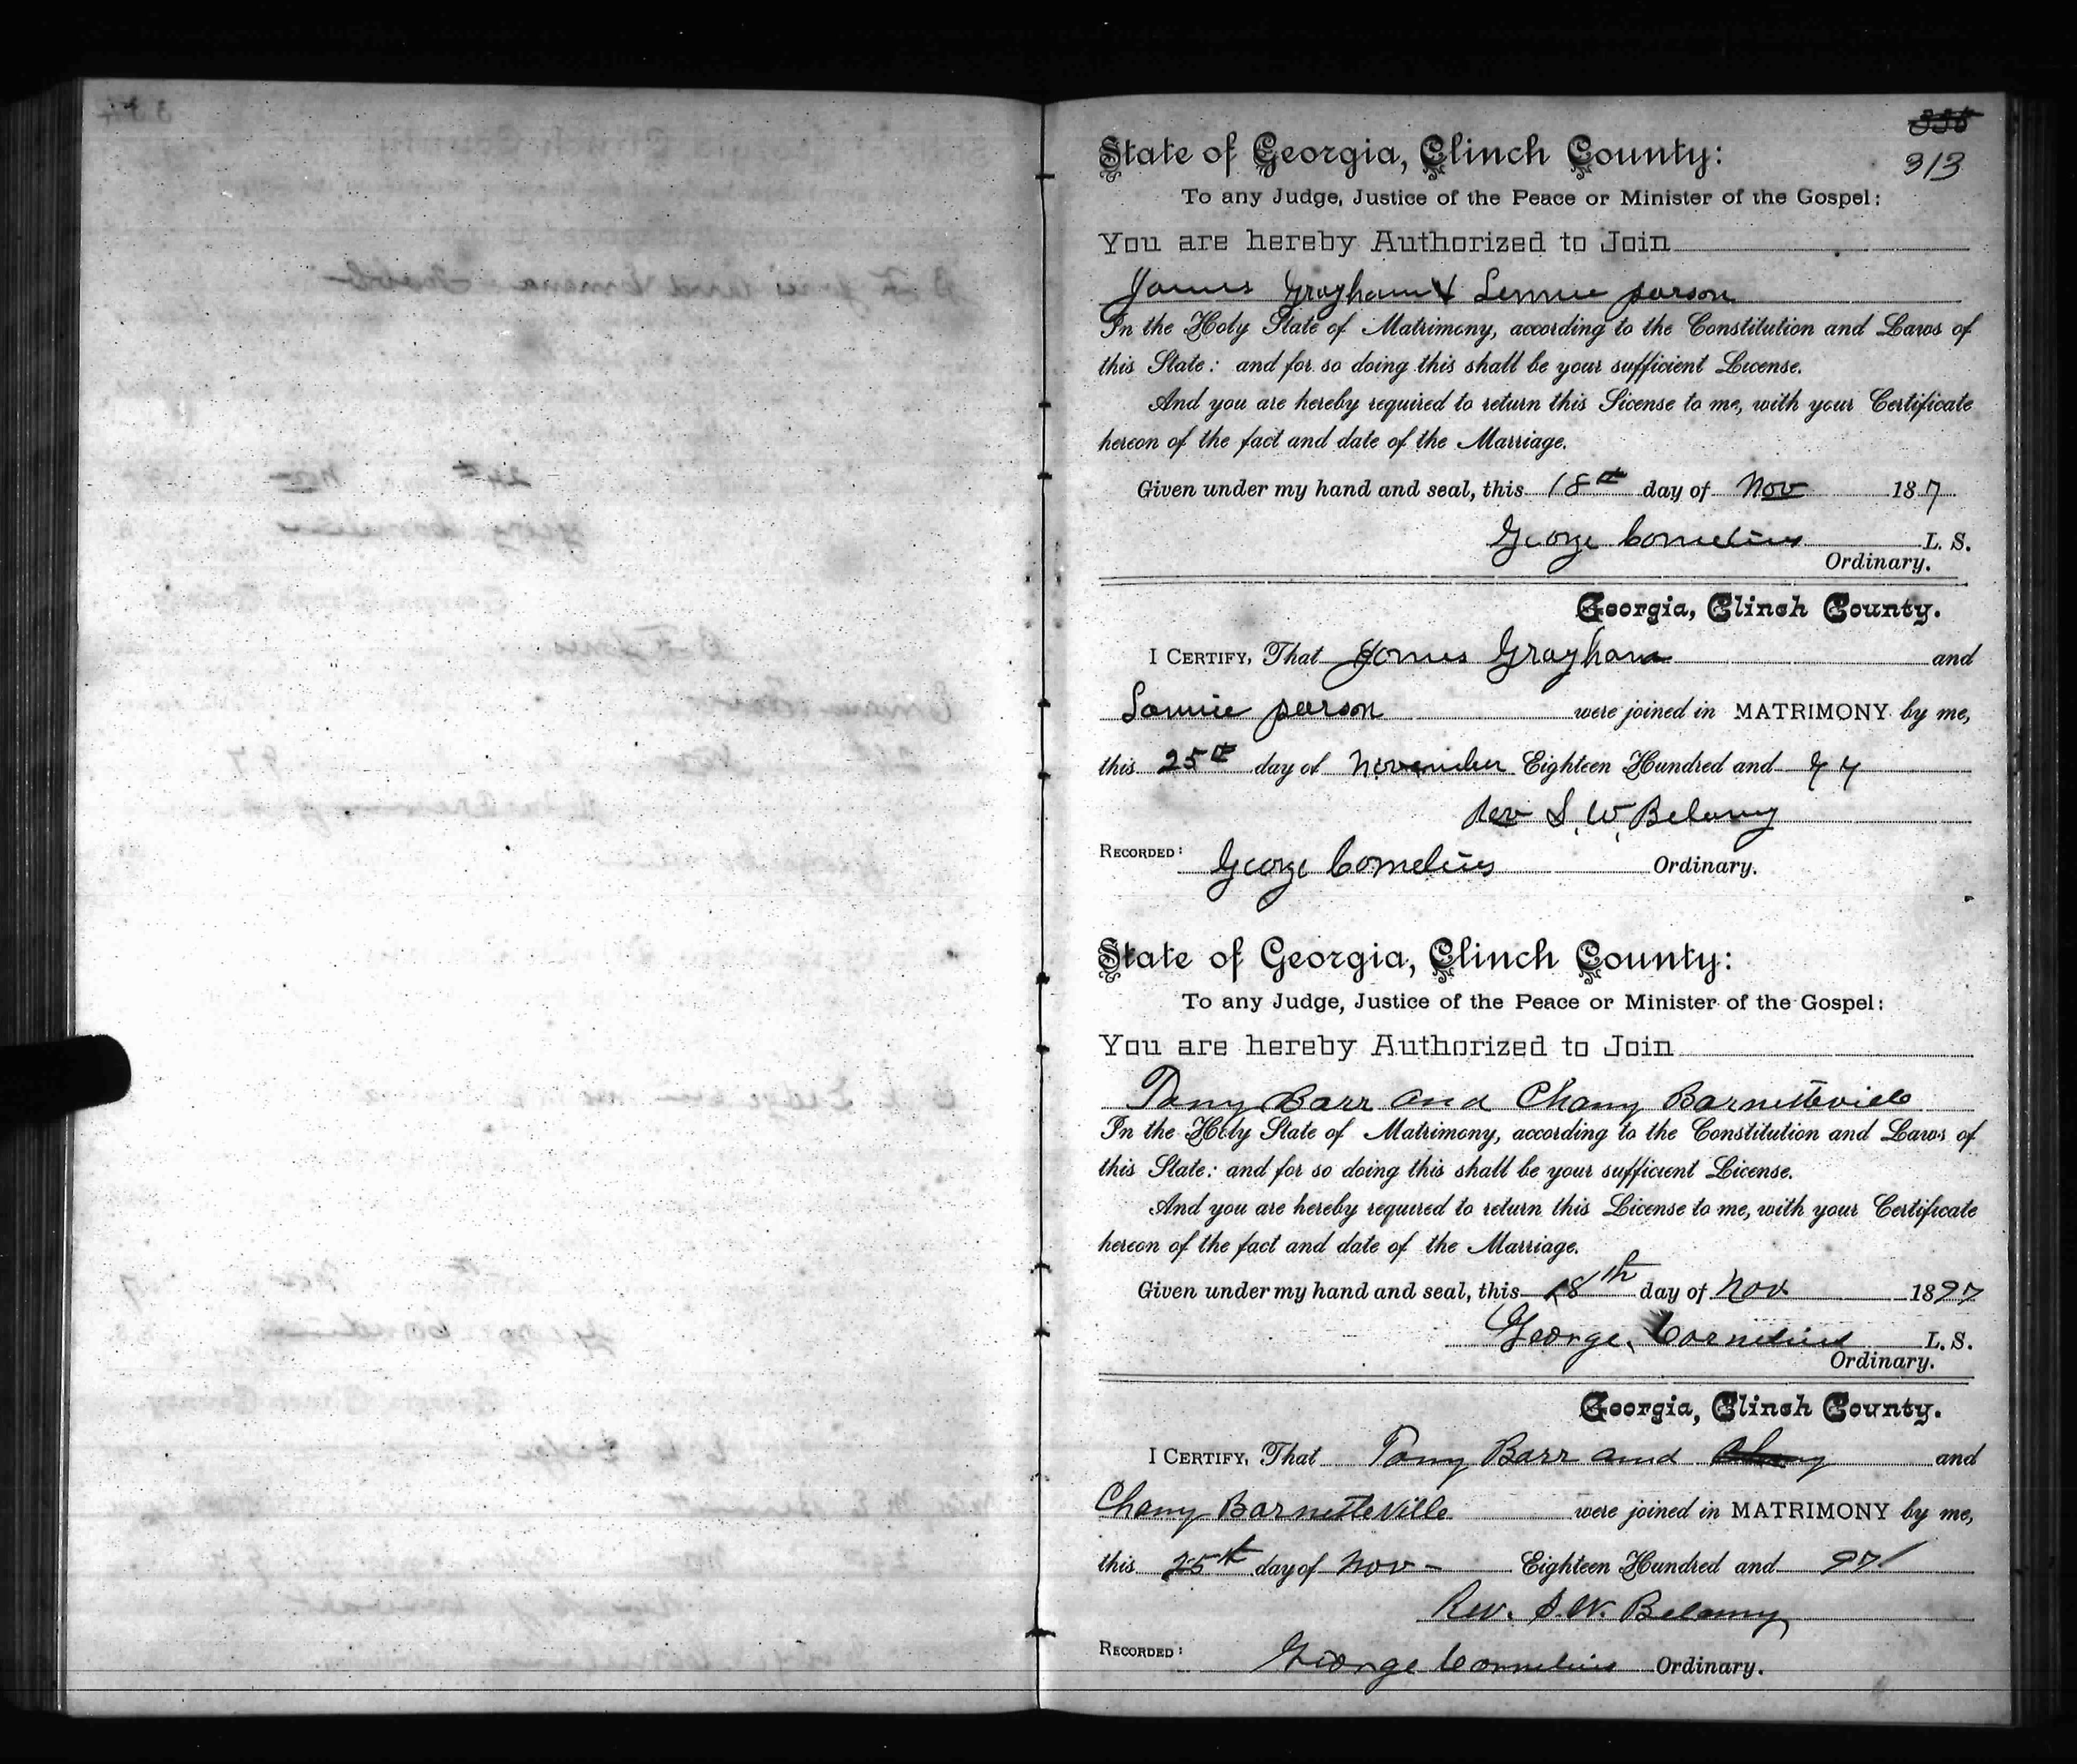 335
313
State of Georgia, Clinch County:
To any Judge, Justice of the Peace or Minister of the Gospel:
You are hereby Authorized to Join
James Grayham & Lennie person
In the Holy State of Matrimony, according to the Constitution and Laws of
this State: and for so doing this shall be your sufficient License.
And you are hereby required to return this License to me, with your Certificate
hereon of the fact and date of the Marriage.
Given under my hand and seal, this 18th day of Nov 187
George Cornelius L. S.
Ordinary.
Georgia, Clinch County.
I Certify, That James Grayham and
Lannie person were joined in MATRIMONY by me,
this 25th day of November Eighteen Hundred and
Rev S. W. Belamy
Recorded: George Cornelius Ordinary.
State of Georgia, Clinch County:
To any Judge, Justice of the Peace or Minister of the Gospel:
You are hereby Authorized to Join
Tony Barr and Chany Barnetteville
In the Holy State of Matrimony, according to the Constitution and Laws of
this State: and for so doing this shall be your sufficient License.
And you are hereby required to return this License to me, with your Certificate
hereon of the fact and date of the Marriage.
Given under my hand and seal, this 18th day of Nov 1897
George Cornelius L. S.
Ordinary.
Georgia, Clinch County.
I Certify, That Tony Barr and Chany and
Chany Barnetteville were joined in MATRIMONY by me,
this 25th day of Nov - Eighteen Hundred and 97
Rev. S. W. Belamy
Recorded: George Cornelius Ordinary.